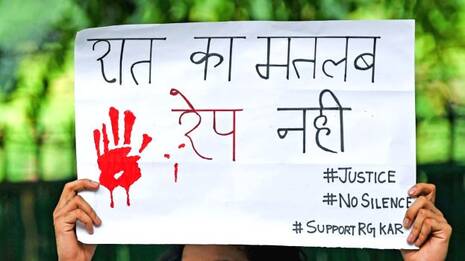 रात का मतलब
रेप नही
#JUSTICE
#NO SILENCE
#SUPPORT RG KAR